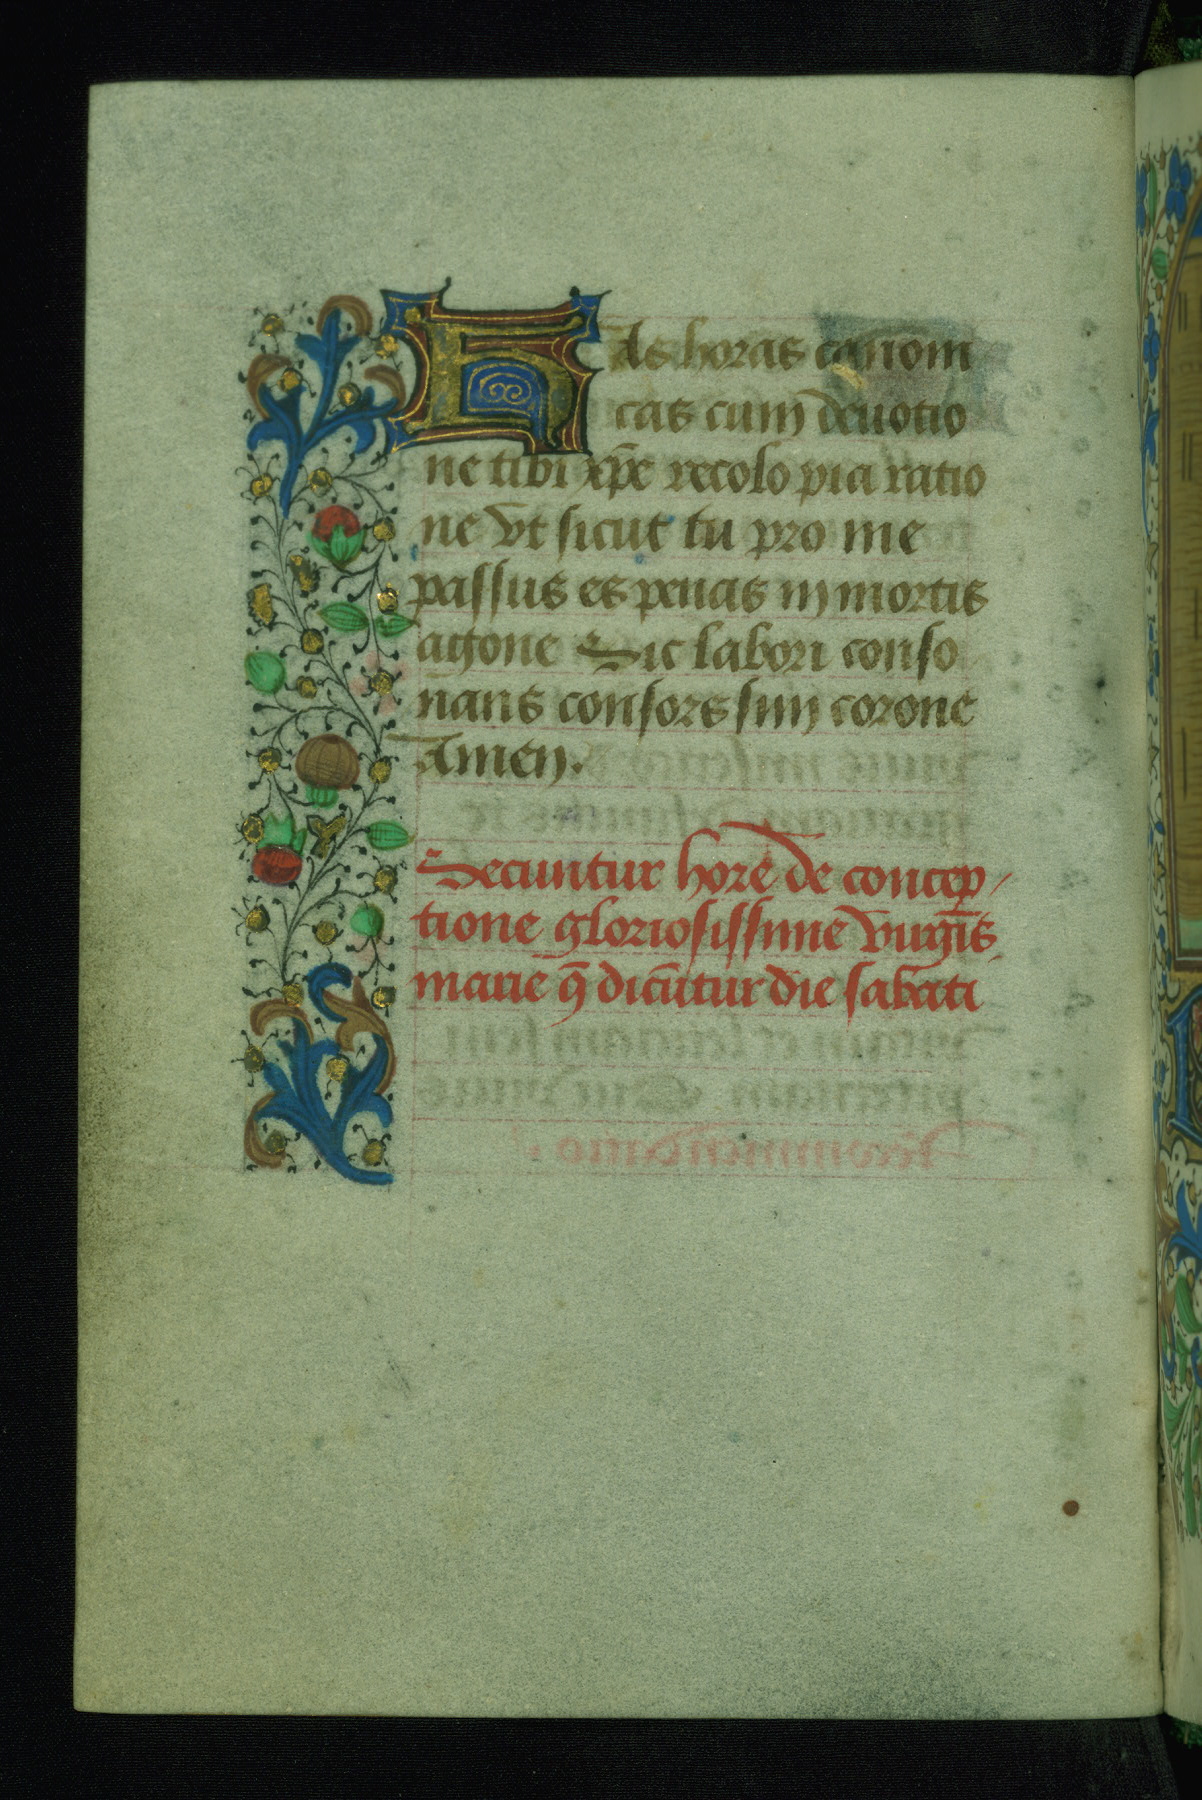 Has horas canoni
cas cum deuotio
ne tibi xp̄e recolo pia ratio
ne Vt sicut tu pro me
passus es penas in mortis
agone Sic labori conso
nans consors sim corone
Amen.
Secuntur hore de concep
tione gloriosissime virgīs
marie q̄ dicūtur die sabati